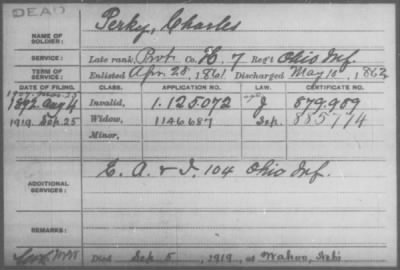 DEAD
NAME OF SOLDIER: Perky, Charles
SERVICE: Late rank, Pvt. Co. H. 7 Reg't Ohio Inf.
TERM OF SERVICE: Enlisted Apr. 28, 1861 Discharged May 10, 1862
DATE OF FILING. CLASS. APPLICATION NO. LAW. CERTIFICATE NO.
1892 Aug 4 Invalid, 1.125.072 J 879.989
1919 Sep. 25 Widow, 1146687 Sep. 885774
Minor,
ADDITIONAL SERVICES: E. A. & I. 104 Ohio Inf.
REMARKS:
Died Sep. 5, 1919, at Wahoo, Neb.